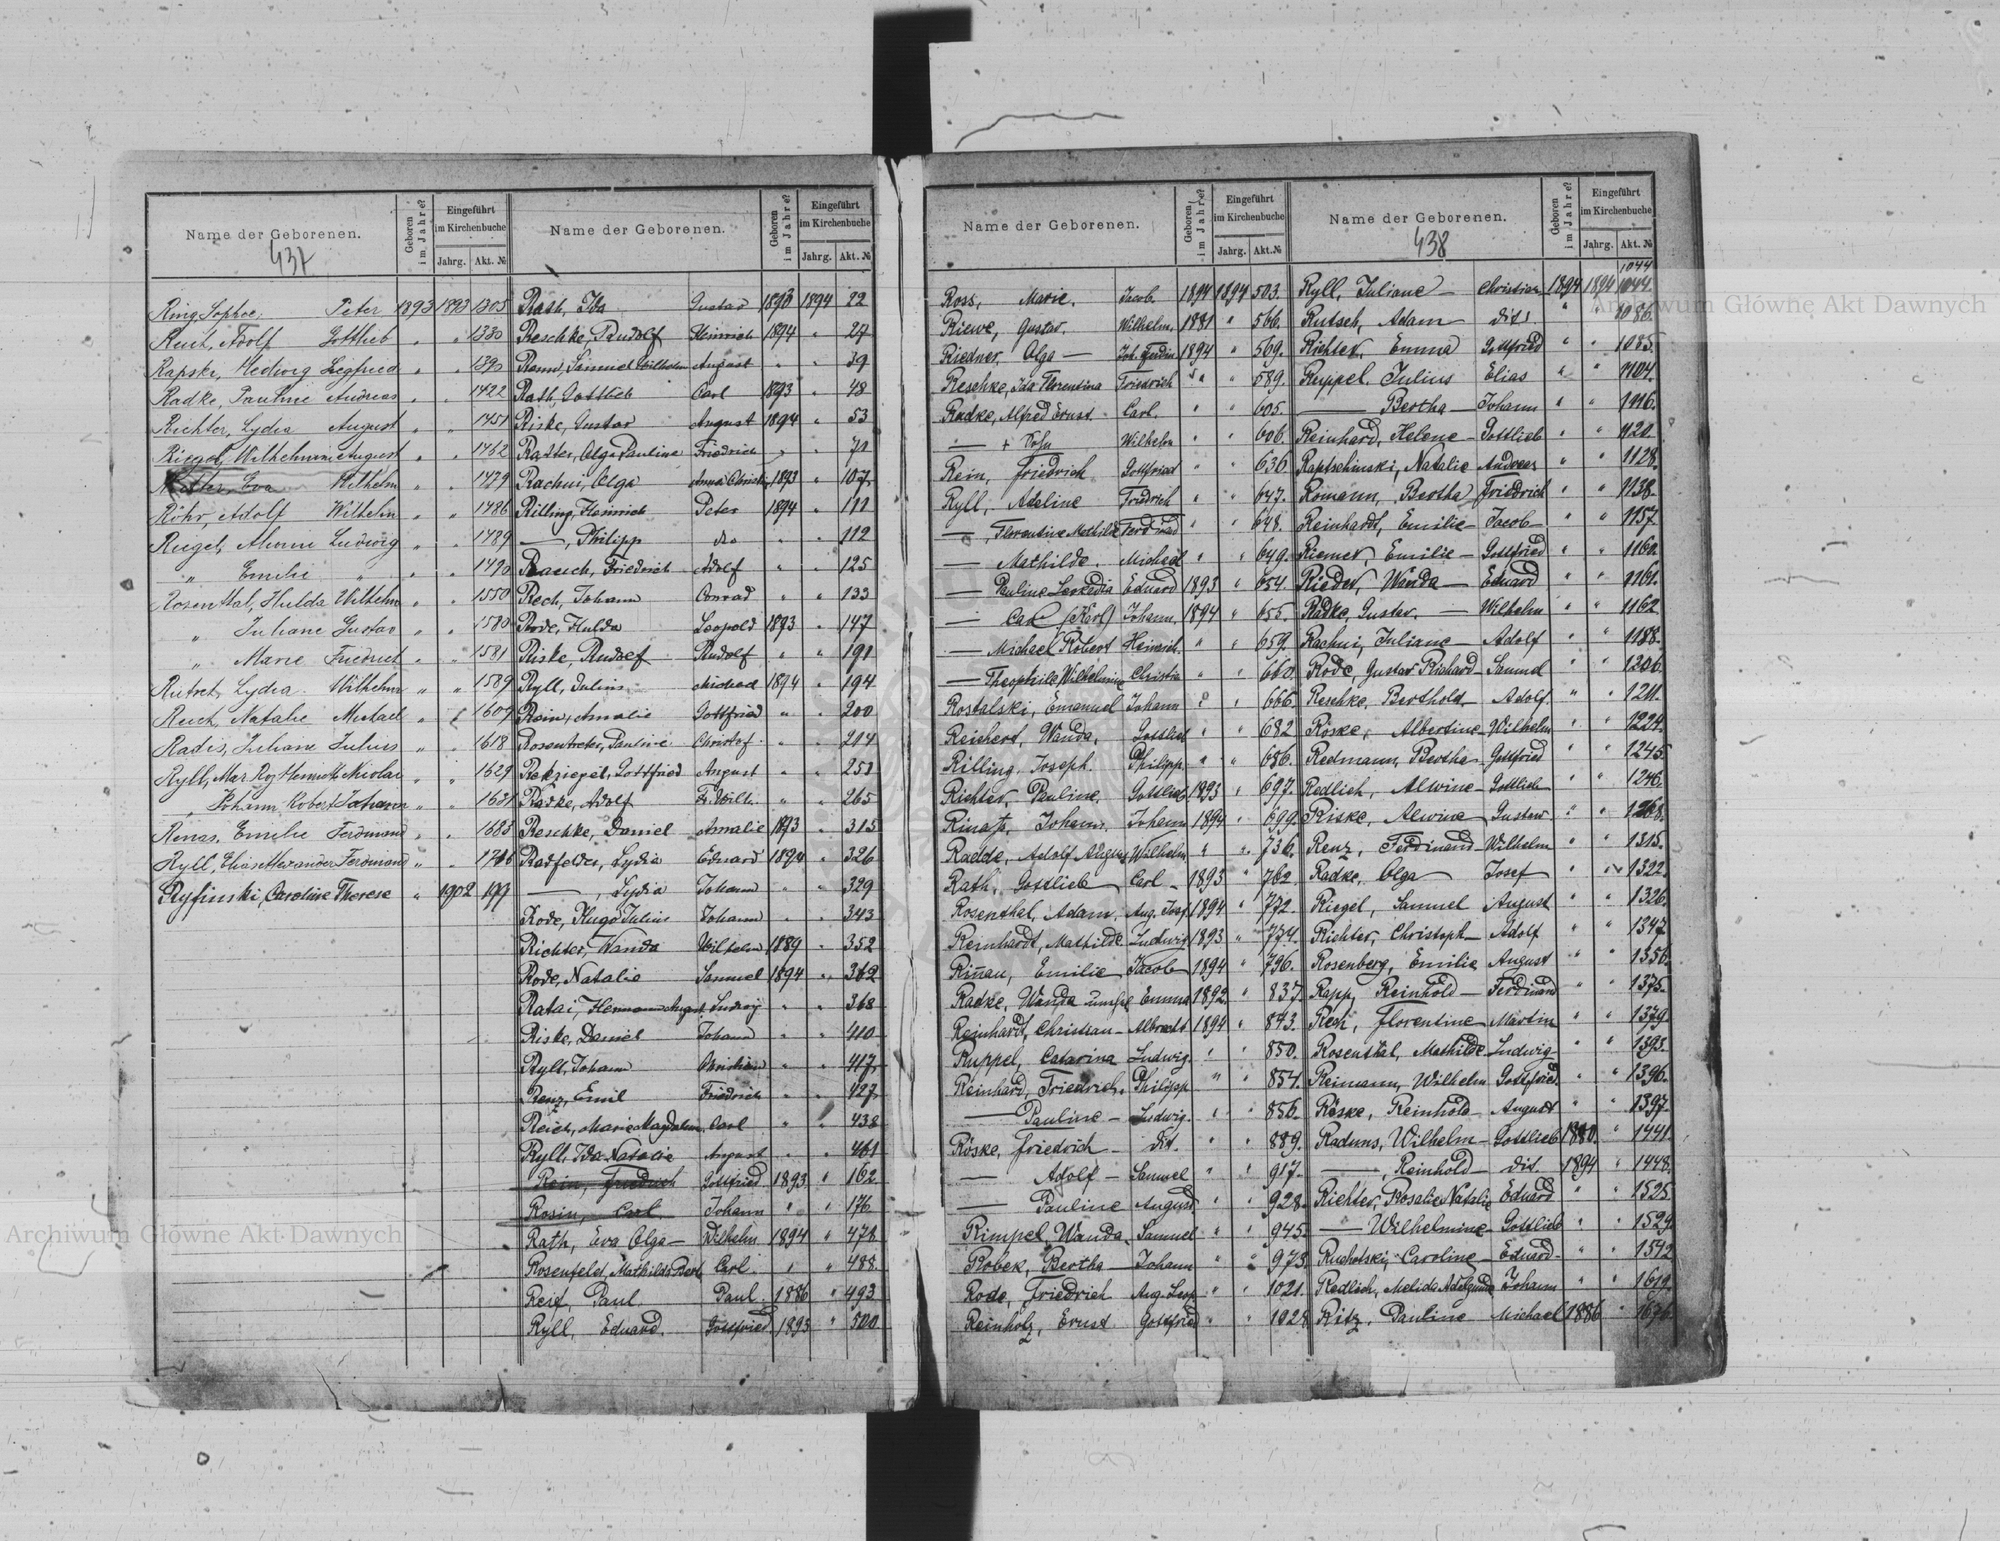 Name der Geborenen.
Geboren im Jahre?
Eingeführt im Kirchenbuche
Jahrg.
Akt. №
437
Ring Sophie Peter 1893 1893 1305
Adolf Gottlieb " " 1330
Rapski, Hedwig Siegfried " "
Radke, Pauline Andreas " " 1422
Richter, Lydia August " " 1451
Riegel, Wilhelmine August " " 1462
Eva Wilhelm " " 1479
Röhr, Adolf Wilhelm " " 1486
Riegel, Ludwig " " 1489
" Emilie " " " 1490
Rosenthal, Hulda Wilhelm " " 1550
" Juliane Gustav " " 1580
" Marie Friedrich " " 1581
Lydia Wilhelm " " 1589
Reich, Natalie Michael " " 1609
Radis, Juliane Julius " " 1618
Ryll, Nicolai " " 1629
" Johann Robert Johann " " 1631
Rinas, Emilie Ferdinand " " 1683
Ryll, Alexander Ferdinand " "
Ryfinski, Caroline Therese " 1902 197
Name der Geborenen.
Geboren im Jahre?
Eingeführt im Kirchenbuche
Jahrg.
Akt. №
Rath, Ida Gustav 1893 1894 22
Reschke, Rudolf Heinrich 1894 " 27
Samuel Wilhelm August " " 39
Rath, Gottlieb Carl 1893 " 48
Riske, Gustav August 1894 " 53
Olga Pauline Friedrich " " 71
Rachui, Olga 1893 " 107
Rilling, Heinrich Peter 1894 " 111
—, Philipp dto " " 112
Rauch, Friedrich Adolf " " 125
Rech, Johann Conrad " " 133
Rode, Hulda Leopold 1893 " 147
Riske, Rudolf Rudolf " " 191
Ryll, Julius Michael 1894 " 194
Rein, Amalie Gottfried " " 200
Rosentreter, Pauline Christof " " 214
Rekziegel, Gottfried August " " 251
Radke, Adolf Fr. Wilh. " " 265
Reschke, Daniel Amalie 1893 " 315
Radfelder, Lydia Eduard 1894 " 326
—, Lydia Johann " " 329
Rode, Hugo Julius Johann " " 343
Richter, Wanda Wilhelm 1889 " 352
Rode, Natalie Samuel 1894 " 362
Ratai, Hermann August Ludwig " " 368
Riske, Daniel Johann " " 410
Ryll, Johann Christian " " 417
Renz, Emil Friedrich " " 427
Reich, Marie Magdalene Carl " " 438
Ryll, Ida Natalie August " " 461
Rein, Friedrich Gottfried 1893 " 162
Rosin, Carl Johann " " 176
Rath, Eva Olga — Wilhelm 1894 " 478
Rosenfeld, Mathilde Carl " " 488
Reif, Paul Paul 1886 " 493
Ryll, Eduard. Gottfried 1893 " 500
Name der Geborenen.
Geboren im Jahre?
Eingeführt im Kirchenbuche
Jahrg.
Akt. №
Ross, Marie. Jacob 1894 1894 503.
Riewe, Gustav. Wilhelm. 1881 " 566.
Riedner, Olga — Joh. Ferdin. 1894 " 569.
Reschke, Ida Florentina Friedrich " " 589.
Radke, Alfred Ernst. Carl " " 605.
— + Sohn Wilhelm " " 606.
Rein, Friedrich Gottfried " " 636
Ryll, Adeline Friedrich " " 647.
—, Florentine Mathilde Ferdinand " " 648.
— Mathilde. Michael " " 649.
— Pauline Leokadia Eduard 1893 " 654.
— Carl (Karl) Johann 1894 " 655.
— Michael Robert Heinrich. " " 659.
— Theophile Wilhelmine Christian " " 660.
Rostalski, Emanuel Johann " " 666.
Reichert, Wanda, Gottlieb " " 682
Rilling, Joseph. Philipp " " 686.
Richter, Pauline. Gottlieb 1893 " 697.
Johann. Johann 1894 " 699.
Radde, Adolf August Wilhelm " " 736.
Rath, Gottlieb Carl — 1893 " 762.
Rosenthal, Adam, Aug. Josf. 1894 " 772.
Reinhardt, Mathilde Ludwig 1893 " 774.
Rinau, Emilie Jacob 1894 " 796.
Radke, Wanda Emma 1892. " 837.
Reinhardt, Christian — Albrecht 1894 " 843.
Ruppel, Catarina Ludwig. " " 850.
Reinhard, Friedrich. Philipp " " 854.
— Pauline — Ludwig. " " 856.
Röske, Friedrich — dit. " " 889.
— Adolf — Samuel " " 917.
— Pauline August " " 928.
Rimpel, Wanda Samuel " " 945.
Robek, Bertha — Johann " " 973.
Rode, Friedrich Aug. Leop. " " 1021.
Reinholz, Ernst Gottfried " " 1028.
Name der Geborenen.
Geboren im Jahre?
Eingeführt im Kirchenbuche
Jahrg.
Akt. №
438
1044
Ryll, Juliane — Christian 1894 1894 1044.
Rutsch, Adam — dito " " 1086.
Richter, Emma Gottfried " " 1085.
Reppel, Julius Elias " " 1104.
— Bertha — Johann " " 1116.
Reinhard, Helene — Gottlieb " " 1120.
Raptschinski, Natalie Andreas " " 1128.
Romann, Bertha Friedrich " " 1138.
Reinhardt, Emilie — Jacob — " " 1157.
Riemer, Emilie — Gottfried " " 1160.
Rieder, Wanda — Eduard " " 1161.
Radke, Gustav. — Wilhelm " " 1162
Rachui, Juliane — Adolf " " 1188.
Rode, Gustav Richard — Samuel " " 1206.
Reschke, Berthold — Adolf. " " 1211.
Röske, Albertine — Wilhelm " " 1224.
Redmann, Bertha — Gottfried " " 1245.
Redlich, Alwine — Gottlieb " " 1246.
Riske, Alwine — Gustav " " 1268.
Renz, Ferdinand — Wilhelm " " 1315.
Radke, Olga — Josef " " 1322.
Riegel, Samuel August " " 1326.
Richter, Christoph — Adolf " " 1347.
Rosenberg, Emilie August " " 1356.
Rapp, Reinhold — Ferdinand " " 1375.
Resk, Florentine — Martin " " 1379.
Rosenthal, Mathilde Ludwig " " 1393.
Reimann, Wilhelm Gottfried " " 1396.
Röske, Reinhold — August " " 1397.
Raduns, Wilhelm — Gottlieb 1880. " 1441.
—, Reinhold — dit. 1894 " 1448.
Richter, Rosalie Natalie Eduard " " 1525.
— Wilhelmine — Gottlieb " " 1529.
Ruchotski, Caroline — Eduard — " " 1542
Redlich, Melida Adelgunde Johann " " 1619.
Ritz, Pauline — Michael 1886 " 1676.
Archiwum Główne Akt Dawnych
Archiwum Główne Akt Dawnych